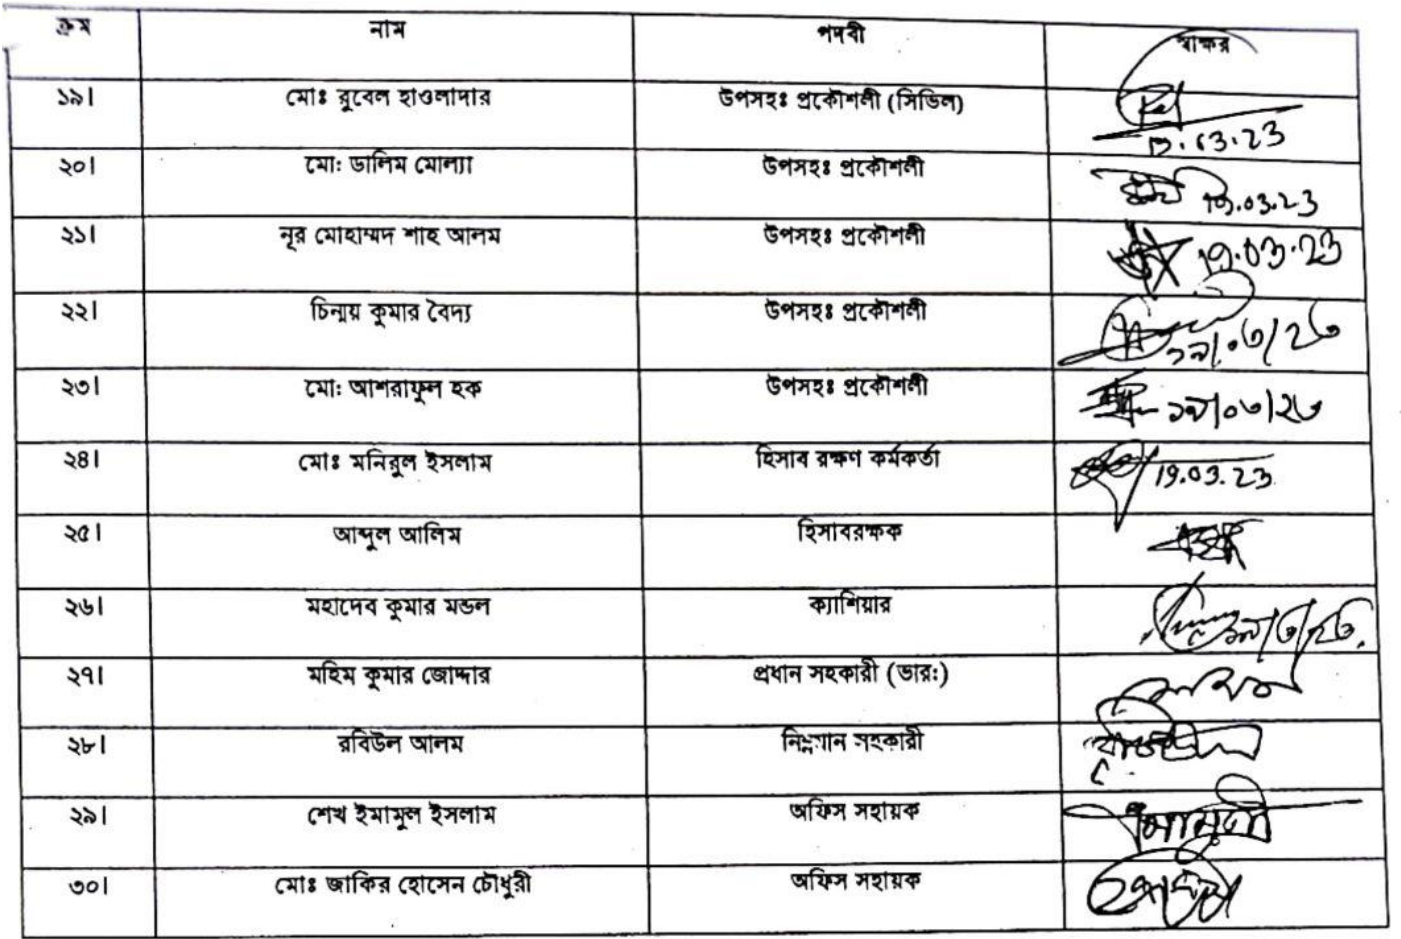 ক্রম নাম পদবী স্বাক্ষর
১৯। মোঃ রুবেল হাওলাদার উপসহঃ প্রকৌশলী (সিভিল)
19.03.23
২০। মো: ডালিম মোল্যা উপসহঃ প্রকৌশলী 19.03.23
২১। নূর মোহাম্মদ শাহ আলম উপসহঃ প্রকৌশলী 19.03.23
২২। চিন্ময় কুমার বৈদ্য উপসহঃ প্রকৌশলী ১৯/০৩/২৩
২৩। মো: আশরাফুল হক উপসহঃ প্রকৌশলী ১৯/০৩/২৩
২৪। মোঃ মনিরুল ইসলাম হিসাব রক্ষণ কর্মকর্তা 19.03.23
২৫। আব্দুল আলিম হিসাবরক্ষক
২৬। মহাদেব কুমার মন্ডল ক্যাশিয়ার ১৯/৩/২৩
২৭। মহিম কুমার জোদ্দার প্রধান সহকারী (ভার:)
২৮। রবিউল আলম নিম্নমান সহকারী
২৯। শেখ ইমামুল ইসলাম অফিস সহায়ক
৩০। মোঃ জাকির হোসেন চৌধুরী অফিস সহায়ক